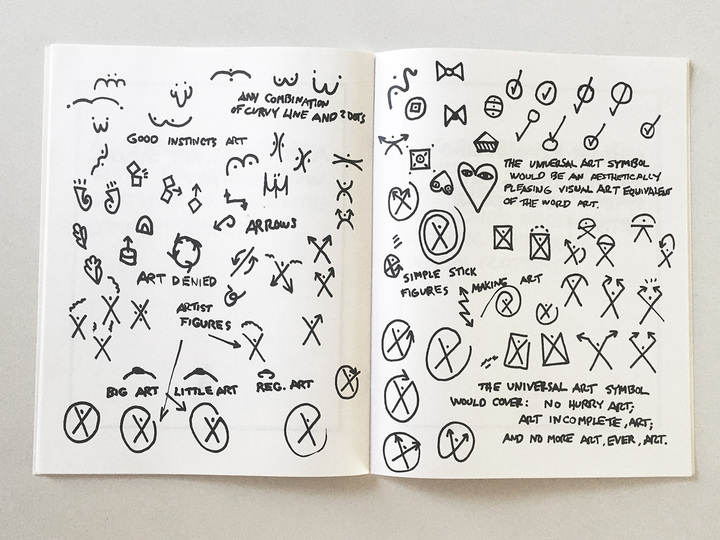 ANY COMBINATION
OF CURVY LINE AND 2 DOTS
GOOD INSTINCTS ART
ARROWS
ART DENIED
ARTIST
FIGURES
BIG ART
LITTLE ART
REG. ART
THE UNIVERSAL ART SYMBOL
WOULD BE AN AESTHETICALLY
PLEASING VISUAL ART EQUIVALENT
OF THE WORD ART.
SIMPLE STICK
FIGURES
MAKING ART
THE UNIVERSAL ART SYMBOL
WOULD COVER: NO HURRY ART;
ART INCOMPLETE, ART;
AND NO MORE ART, EVER, ART.